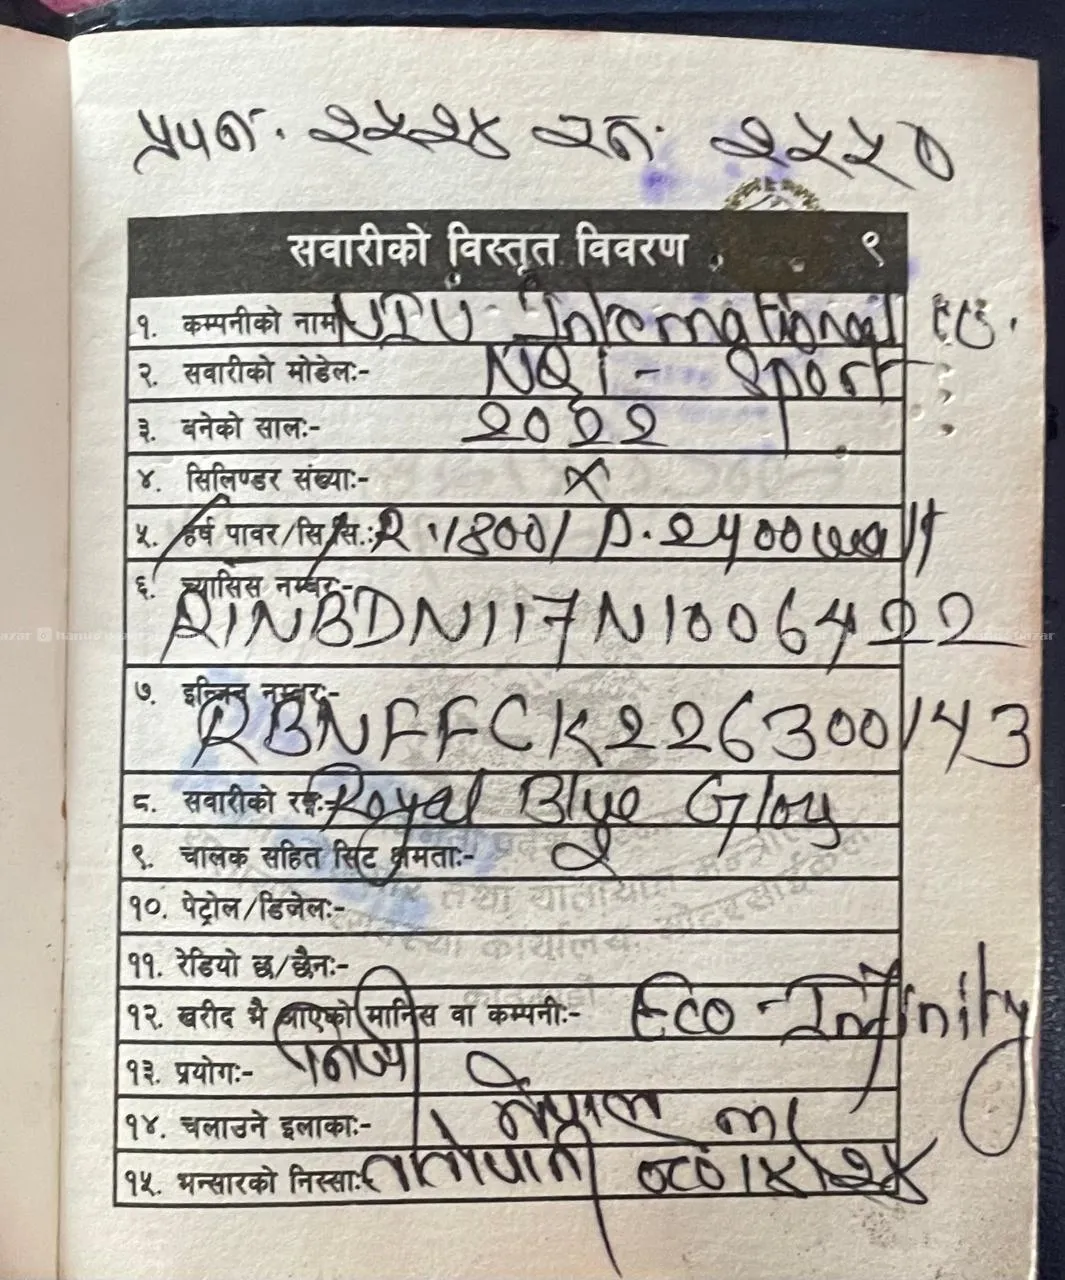 प्र.प.नं. २५२४ इ.नं. २५५०
सवारीको विस्तृत विवरण ९
१. कम्पनीको नाम NIU International
२. सवारीको मोडेलः- NQi - Sport
३. बनेको सालः- 2022
४. सिलिण्डर संख्याः- X
५. हर्ष पावर/सि.सि.: R.1800/ P.2400watt
६. च्यासिस नम्बरः-
R1NBDN117N1006422
७. इन्जिन नम्बरः-
RBNFFCK226300143
८. सवारीको रङ्गः- Royal Blue Glory
९. चालक सहित सिट क्षमताः- २
१०. पेट्रोल/डिजेलः-
११. रेडियो छ/छैनः-
१२. खरीद भै आएको मानिस वा कम्पनीः- Eco - Infinity
१३. प्रयोगः- निजी
१४. चलाउने इलाकाः- नेपाल भर
१५. भन्सारको निस्साः- तातोपानी